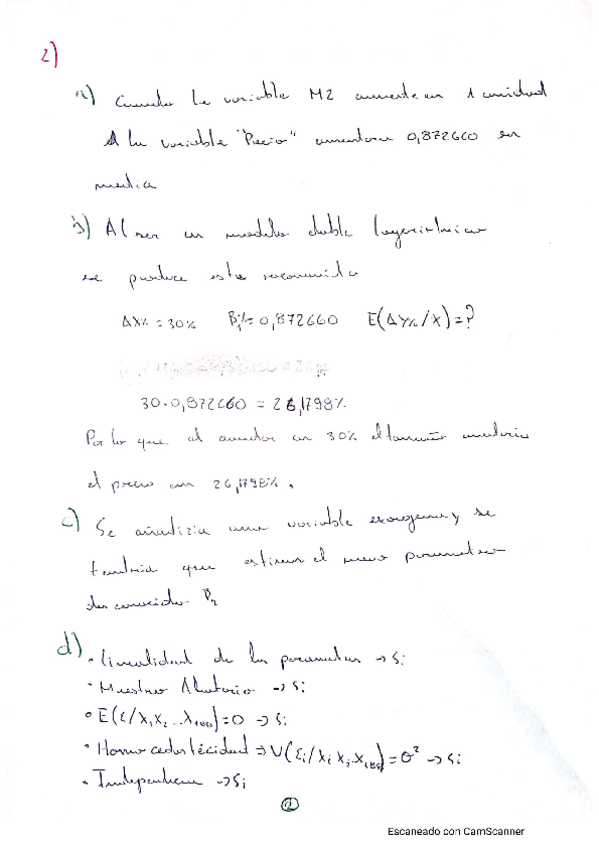 2)
a) Cuando la variable M2 aumenta en 1 unidad
A la variable "Precio" aumentara 0,872660 en
media
b) Al ser un modelo doble logaritmico
se produce este
ΔX% = 30% B₁%=0,872660 E(ΔY%/X)=?
30·0,872660 = 26,1798%
Por lo que al aumentar un 30% el tamaño aumentaria
el precio un 26,1798%.
c) Se añadiria una variable exogena y se
tendria que estimar el nuevo parametro
desconocido B₂
d) · linealidad de los parametros → Si
· Muestreo Aleatorio → Si
· E(ε/X₁X₂...X₁₈₀)=0 → Si
· Homocedasticidad ⇒ V(εᵢ/X₁ X₂ X₁₈₀)=σ² → Si
· Independencia → Si
2
Escaneado con CamScanner